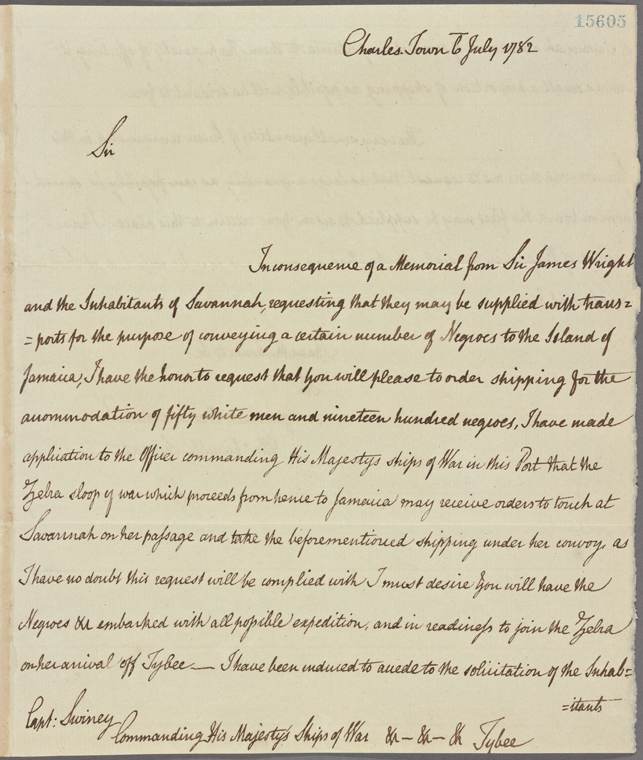 15605
Charles Town 6 July 1782
Sir
In consequence of a Memorial from Sir James Wright
and the Inhabitants of Savannah, requesting that they may be supplied with trans=
=ports for the purpose of conveying a certain number of Negroes to the Island of
Jamaica, I have the honor to request that you will please to order shipping for the
accommodation of fifty white men and nineteen hundred negroes, I have made
application to the Officer commanding His Majestys ships of War in this Port that the
Zebra sloop of war which proceeds from hence to Jamaica may receive orders to touch at
Savannah on her passage and take the beforementioned shipping under her convoy, as
I have no doubt this request will be complied with I must desire you will have the
Negroes &c embarked with all possible expedition, and in readiness to join the Zebra
on her arrival off Tybee — I have been induced to accede to the solicitation of the Inhab=
=itants
Capt: Swiney
Commanding His Majesty's Ships of War &c — &c — &c Tybee